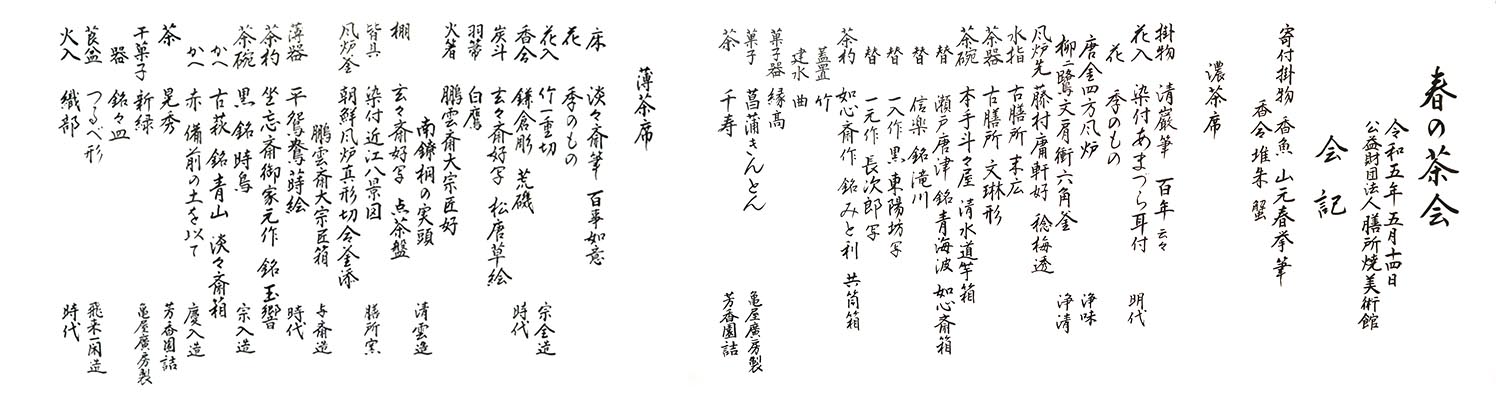 春の茶会
令和五年五月十四日
公益財団法人膳所焼美術館
会記
寄付掛物 香魚 山元春挙筆
香合 堆朱 蟹
濃茶席
掛物 清巌筆 百年云々
花入 染付あまづら耳付 明代
花 季のもの
唐金四方風炉 浄味
柳二鷺文肩衝六角釜 浄清
風炉先 藤村庸軒好 稔梅透
水指 古膳所 末広
茶器 古膳所 文琳形
茶碗 本手斗々屋 清水道竿箱
替 瀬戸唐津 銘青海波 如心斎箱
替 信楽 銘滝川
替 一入作 黒 東陽坊写
替 一元作 長次郎写
茶杓 如心斎作 銘みと利 共筒箱
蓋置 竹
建水 曲
菓子器 縁高
菓子 菖蒲きんとん 亀屋廣房製
茶 千寿 芳香園詰
薄茶席
床 淡々斎筆 百事如意
花 季のもの
花入 竹一重切 宗全造
香合 鎌倉彫 荒磯 時代
炭斗 玄々斎好写 松唐草絵
羽箒 白鷹
火箸 鵬雲斎大宗匠好
南鐐桐の実頭 清雲造
棚 玄々斎好写 点茶盤
皆具 染付近江八景図 膳所窯
風炉釜 朝鮮風炉真形切合釜添
鵬雲斎大宗匠箱 与斎造
薄器 平鴛鴦蒔絵 時代
茶杓 坐忘斎御家元作 銘 玉響
茶碗 黒 銘 時鳥 宗入造
かへ 古萩 銘 青山 淡々斎箱
かへ 赤 備前の土を以て 慶入造
茶 晃秀 芳香園詰
干菓子 新緑 亀屋廣房製
器 銘々皿
莨盆 つるべ形 飛来一閑造
火入 織部 時代